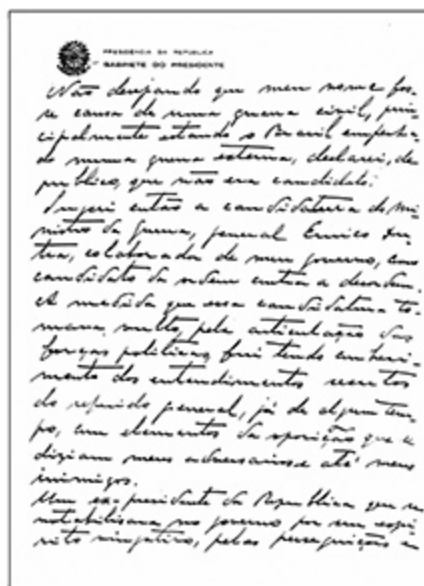 PRESIDENCIA DA REPUBLICA
GABINETE DO PRESIDENTE
Não desejando que meu nome fos-
se causa de uma guerra civil, prin-
cipalmente estando o Brasil empenha-
do numa guerra externa, declarei, de
publico, que não era candidato.
Sugeri então a candidatura do Mi-
nistro da Guerra, general Eurico Du-
tra, colaborador de meu governo, como
candidato da ordem contra a desordem.
A medida que essa candidatura to-
mava vulto, pela articulação das
forças politicas, fui tendo conheci-
mento dos entendimentos secretos
do referido general, já de algum tem-
po, com elementos da oposição que se
diziam meus adversarios e até meus
inimigos.
Um ex-presidente da Republica que se
notabilisara no governo por seu espi-
rito vingativo, pelas perseguições e